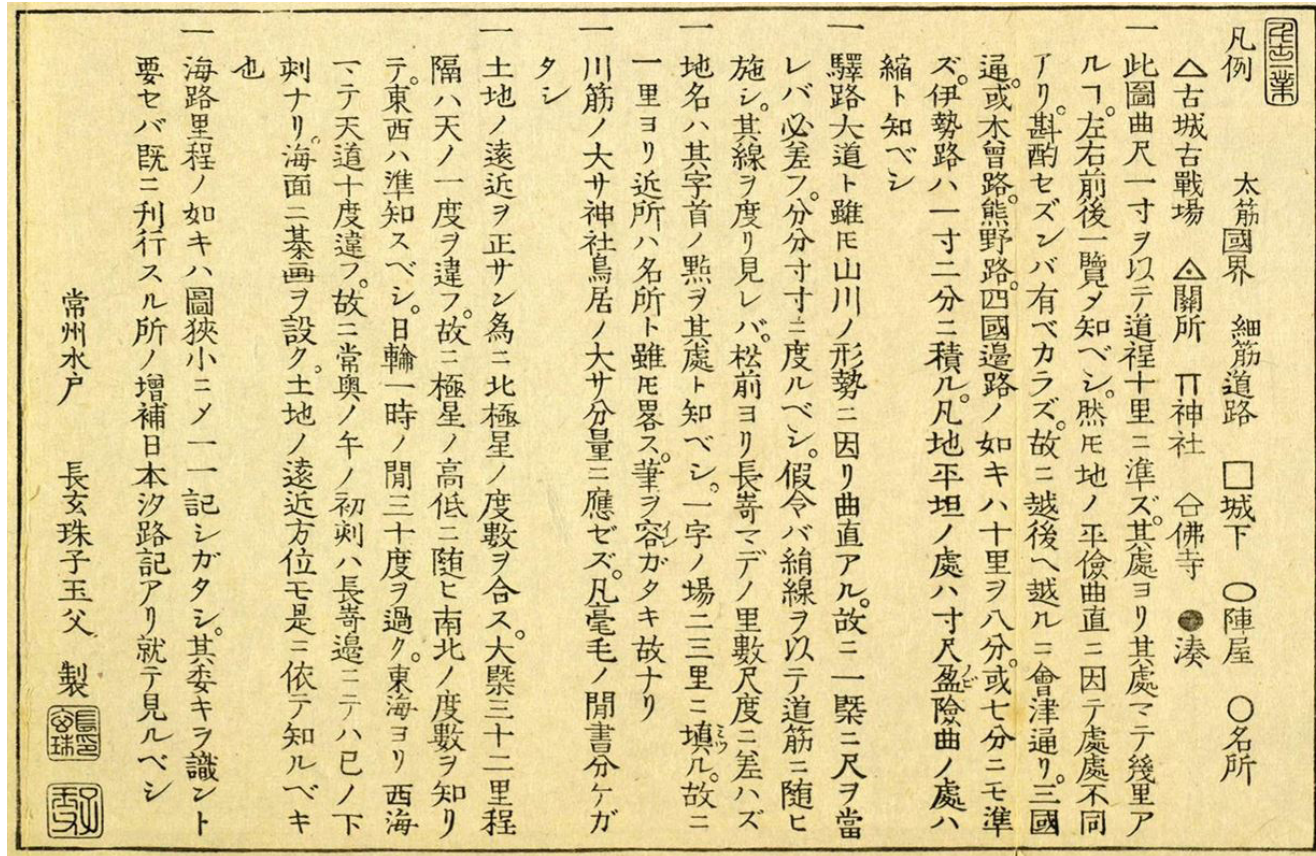 凡例　太筋國界　細筋道路　□城下　○陣屋　○名所
△古城古戰場　◬關所　⛩神社　佛寺　●湊
一此圖曲尺一寸ヲ以テ道程十里ニ準ズ其處ヨリ其處マテ幾里ア
ルヿ。左右前後一覽〆知ベシ。然𪜈地ノ平儉曲直ニ因テ處處不同
アリ。斟酌セズンバ有ベカラズ。故ニ越後ヘ越ルニ會津通リ。三國
通。或木曾路。熊野路。四國邉路ノ如キハ十里ヲ八分。或七分ニモ準
ズ。伊勢路ハ一寸二分ニ積ル。凡地平坦ノ處ハ寸尺盈險曲ノ處ハ
縮ト知ベシ
一驛路大道ト雖𪜈山川ノ形勢ニ因リ曲直アル。故ニ一槩ニ尺ヲ當
レバ必差フ。分分寸寸ニ度ルベシ。假令バ絹線ヲ以テ道筋ニ随ヒ
施シ。其線ヲ度リ見レバ。松前ヨリ長嵜マデノ里數尺度ニ差ハズ
一地名ハ其字首ノ㸃ヲ其處ト知ベシ。一字ノ場二三里ニ塡ル。故ニ
一里ヨリ近所ハ名所ト雖𪜈畧ス。筆ヲ容ガタキ故ナリ
一川筋ノ大サ神社鳥居ノ大サ分量ニ應ゼズ。凡毫毛ノ間書分ケガ
タシ
一土地ノ遠近ヲ正サン為ニ北極星ノ度數ヲ合ス。大槩三十二里程
隔ハ天ノ一度ヲ違フ。故ニ極星ノ高低ニ随ヒ南北ノ度數ヲ知リ
テ。東西ハ準知スベシ。日輪一時ノ間三十度ヲ過ク。東海ヨリ西海
マテ天道十度違フ。故ニ常奥ノ午ノ初刺ハ長嵜邉ニテハ巳ノ下
刺ナリ。海面ニ棊画ヲ設ク。土地ノ遠近方位モ是ニ依テ知ルベキ
也
一海路里程ノ如キハ圖狹小ニ〆一一記シガタシ。其委キヲ識ント
要セバ既ニ刊行スル所ノ増補日本汐路記アリ就テ見ルベシ
常州水戸　長玄珠子玉父　製